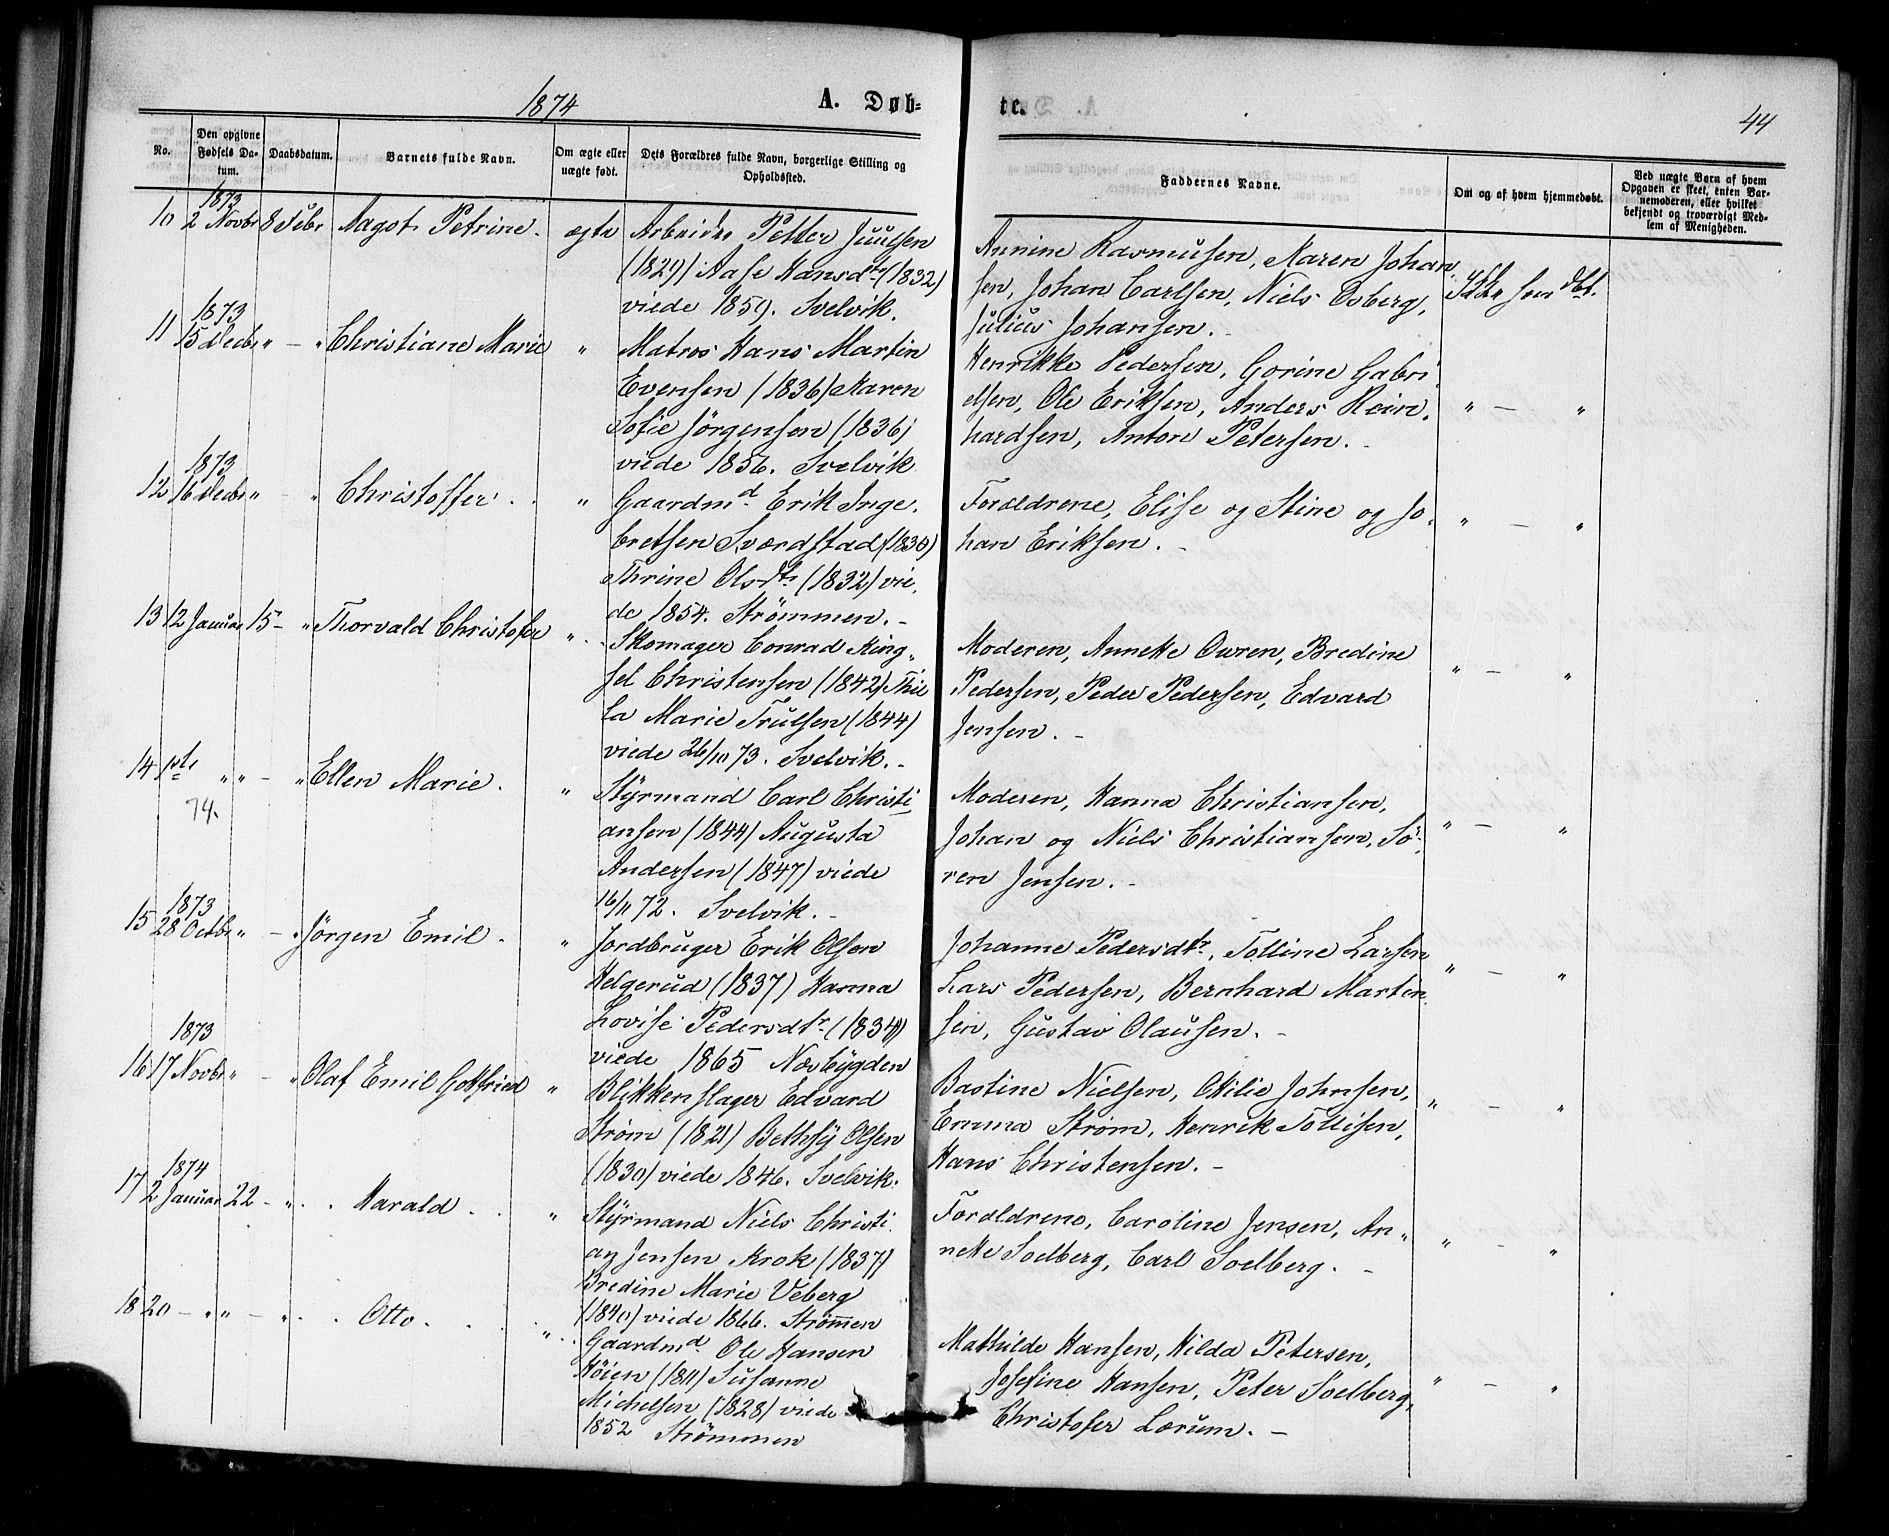 1874
A. Døb-
te.
44
No.
Den opgivne Fødsels Da-
tum.
Daabsdatum.
Barnets fulde Navn.
Om ægte eller
uægte født.
Dets Forældres fulde Navn, borgerlige Stilling og
Opholdssted.
Faddernes Navne.
Om og af hvem hjemmedøbt.
Ved uægte Barn af hvem
Opgaven er skeet, enten Bar-
nemoderen, eller hvilket
bekjendt og troværdigt Med-
lem af Menigheden.
1873
10 2 Novbr 8 Febr Aagot Petrine. ægte Arbeider Petter Juulsen
(1829) Aase Hansdtr (1832)
viede 1850. Svelvik.
Annine Rasmussen, Karen Johan
sen, Johan Carlsen, Niels Osberg,
Julius Johansen.
Ikke hmdbt.
1873
11 15 Decbr " - " Christiane Marie " Matros Hans Martin
Evensen (1836) Maren
Sofie Jörgensen (1836)
viede 1856. Svelvik
Henrikke Pedersen, Gorine Gabri
elsen, Ole Eriksen, Anders Rein,
hardsen, Anton Petersen. -
" - "
1873
12 16 Decbr " - " Christoffer. " Gaardmd Erik Inge.
bretsen Sværdstad (1830)
Thrine Olsdtr (1832) vie,
de 1854. Strömmen. -
Foroldrene, Elise og Stine og Jo,
han Eriksen. -
" - "
13 12 Januar 15 - " Thorvald Christofer " Skomager Conrad Ring,
sel Christensen (1842)
la Marie Trulsen (1844)
viede 26/10 73. Svelvik. -
Moderen, Annette Owren, Bredine
Pedersen, Peder Pedersen, Edvard
Jensen. -
" - "
14 1ste " " - " Ellen Marie. " Styrmand Carl Christi
74.
ansen (1844) Augusta
Andersen (1847) viede
16/11 72. Svelvik. -
Moderen, Hanna Christiansen,
Johan og Niels Christiansen, Sö-
ren Jensen. -
" - "
1873
15 28 Octbr " - " Jörgen Emil. " Jordbruger Erik Olsen
Helgerud (1837) Hanna
Lovise Pedersdtr. (1834)
viede 1865 Nesbygden
Johanne Pedersdtr, Tolline Larsen
Lars Pedersen, Bernhard Martin
sen, Gustav Olausen. -
" - "
1873
16 17 Novbr " - " Olaf Emil Gottfried " Blikkenslager Edvard
Strøm (1821) Bethsy Olsen
(1830) viede 1846. Svelvik.
Bastine Nielsen, Otilie Johnsen,
Emma Strøm, Henrik Tollisen,
Hans Christensen. -
" - "
1874
17 2 Januar 22 - " Harald. " Styrmand Niels Christi
an Jensen Krok (1837)
Bredine Marie Veberg
(1840) viede 1866. Strømmen
Foroldrene, Caroline Jensen, An,
nette Soelberg, Carl Soelberg. -
" - "
18 20 - " " - " Otto. " Gaardmd Ole Hansen
Höien (1811) Susanne
Michelsen (1828) viede
1852 Strömmen
Mathilde Hansen, Hilda Petersen,
Josefine Hansen, Peter Soelberg,
Christofer Lorum. -
" - "